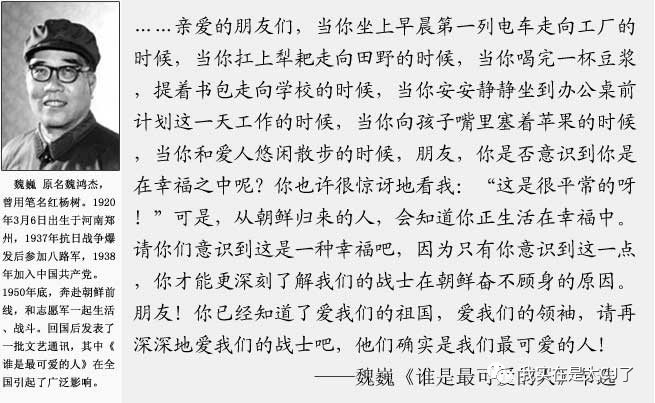 魏巍 原名魏鸿杰，
曾用笔名红杨树。1920
年3月6日出生于河南郑
州，1937年抗日战争爆
发后参加八路军，1938
年加入中国共产党。
1950年底，奔赴朝鲜前
线，和志愿军一起生活
、战斗。回国后发表了
一批文艺通讯，其中《
谁是最可爱的人》在全
国引起了广泛影响。
……亲爱的朋友们，当你坐上早晨第一列电车走向工厂的
时候，当你扛上犁耙走向田野的时候，当你喝完一杯豆浆
，提着书包走向学校的时候，当你安安静静坐到办公桌前
计划这一天工作的时候，当你向孩子嘴里塞着苹果的时候
，当你和爱人悠闲散步的时候，朋友，你是否意识到你是
在幸福之中呢？你也许很惊讶地看我：“这是很平常的呀
！”可是，从朝鲜归来的人，会知道你正生活在幸福中。
请你们意识到这是一种幸福吧，因为只有你意识到这一点
，你才能更深刻了解我们的战士在朝鲜奋不顾身的原因。
朋友！你已经知道了爱我们的祖国，爱我们的领袖，请再
深深地爱我们的战士吧，他们确实是我们最可爱的人！
——魏巍《谁是最可爱的人》节选